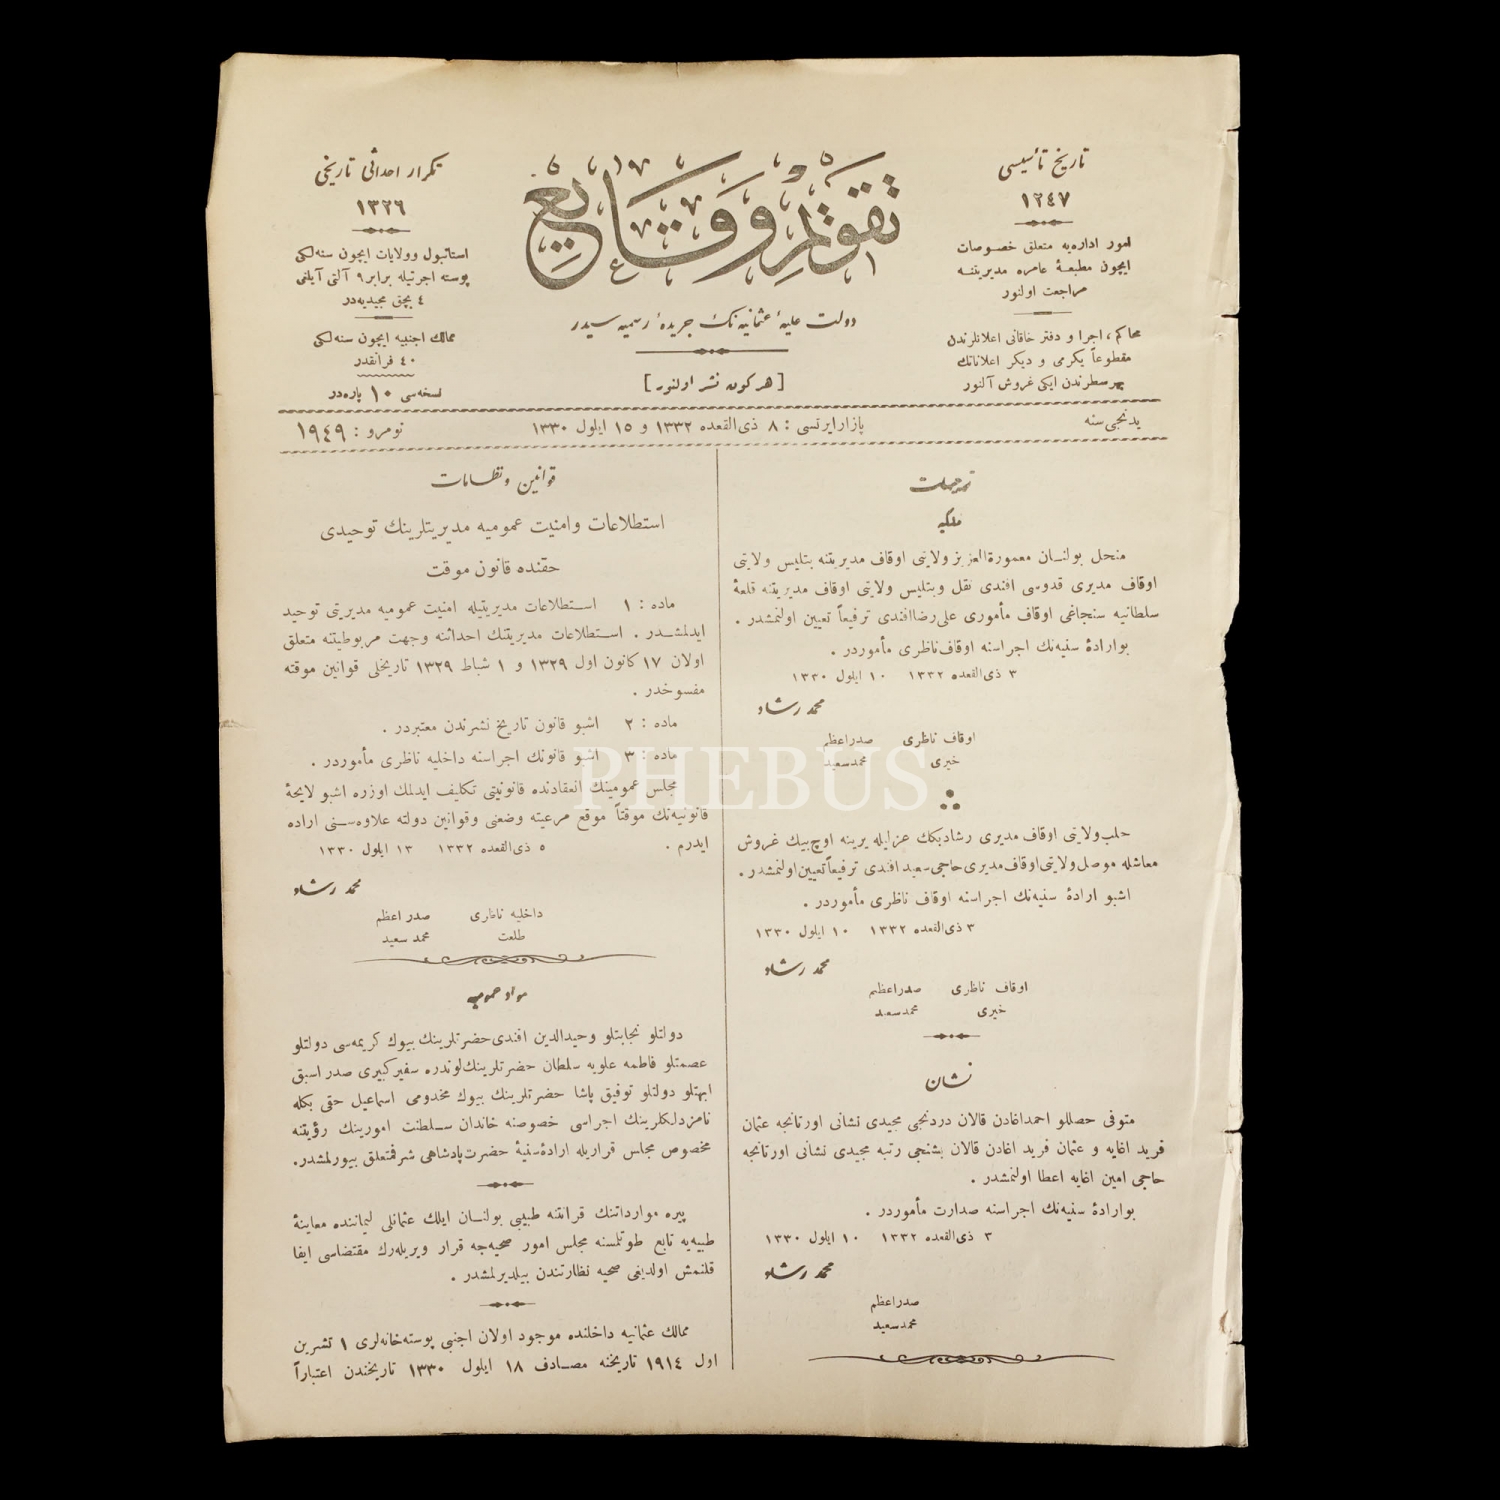 تاريخ تأسيسى
١٢٤٧
امور اداره‌يه متعلق خصوصات
ايچون مطبعهٔ عامره مديريتنه
مراجعت اولنور
محاكم ، اجرا و دفتر خاقانى اعلانلرندن
مقطوعاً يكرمى و ديكر اعلاناتك
بهر سطرندن ايكى غروش آلنور
تقويم وقايع
دولت عليهٔ عثمانيه‌نك جريدهٔ رسميه سيدر
[ هركون نشر اولنور ]
تكرار احداثى تاريخى
١٣٢٦
استانبول وولايات ايچون سنه‌لكى
پوسته اجرتيله برابر ٩ آلتى آيلغى
٤ بچق مجيديه‌در
ممالك اجنبيه ايچون سنه‌لكى
٤٠ فرانقدر
نسخه‌سى ١٠ پاره‌در
يدنجى سنه
پازارايرتسى : ٨ ذى‌القعده ١٣٣٢ و ١٥ ايلول ١٣٣٠
نومرو : ١٩٤٩
توجيهات
ملكيه
منحل بولنــان معمورة‌العزيز ولايتى اوقاف مديريتنه بتليس ولايتى
اوقاف مديرى قدوسى افندى نقل وبتليس ولايتى اوقاف مديريتنه قلعهٔ
سلطانيه سنجاغى اوقاف مأمورى على‌رضا افندى ترفيعاً تعيين اولنمشدر .
بو ارادهٔ سنيه‌نك اجراسنه اوقاف ناظرى مأموردر .
٣ ذى‌القعده ١٣٣٢ ١٠ ايلول ١٣٣٠
محمد رشاد
اوقاف ناظرى صدراعظم
خيرى محمدسعيد
حلب ولايتى اوقاف مديرى رشادبكك عزليله يرينه اوچ‌بيك غروش
معاشله موصل ولايتى اوقاف مديرى حاجى سعيد افندى ترفيعاً تعيين اولنمشدر .
اشبو ارادهٔ سنيه‌نك اجراسنه اوقاف ناظرى مأموردر .
٣ ذى‌القعده ١٣٣٢ ١٠ ايلول ١٣٣٠
محمد رشاد
اوقاف ناظرى صدراعظم
خيرى محمدسعيد
نشان
متوفى حصللو احمداغادن قالان دردنجى مجيدى نشانى اورتانجه عثمان
فريد اغايه و عثمان فريد اغادن قالان بشنجى رتبه مجيدى نشانى اورتانجه
حاجى امين اغايه اعطا اولنمشدر .
بو ارادهٔ سنيه‌نك اجراسنه صدارت مأموردر .
٣ ذى‌القعده ١٣٣٢ ١٠ ايلول ١٣٣٠
محمد رشاد
صدراعظم
محمدسعيد
قوانين ونظــامات
استطلاعات وامنيت عموميه مديريتلرينك توحيدى
حقنده قانون موقت
ماده : ١ استطلاعات مديريتيله امنيت عموميه مديريتى توحيد
ايدلمشدر . استطلاعات مديريتنك احداثنه وجهت مربوطيتنه متعلق
اولان ١٧ كانون اول ١٣٢٩ و ١ شباط ١٣٢٩ تاريخلى قوانين موقته
مفسوخدر .
ماده : ٢ اشبو قانون تاريخ نشرندن معتبردر .
ماده : ٣ اشبو قانونك اجراسنه داخليه ناظرى مأموردر .
مجلس عمومينك انعقادنده قانونيتى تكليف ايدلمك اوزره اشبو لايحهٔ
قانونيه‌نك موقتاً موقع مرعيته وضعنى وقوانين دولته علاوه‌سـنى اراده
ايدرم . ٥ ذى‌القعده ١٣٣٢ ١٣ ايلول ١٣٣٠
محمد رشاد
داخليه ناظرى صدر اعظم
طلعت محمد سعيد
مواد عموميه
دولتلو نجابتلو وحيدالدين افندى حضرتلرينك بيوك كريمه‌سى دولتلو
عصمتلو فاطمه علويه سلطان حضرتلرينك لوندره سفير كبيرى صدر اسبق
ابهتلو دولتلو توفيق پاشا حضرتلرينك بيوك مخدومى اسماعيل حقى بكله
نامزدلكلرينك اجراسى خصوصنه خاندان سـلطنت امورينك رؤيتنه
مخصوص مجلس قراريله ارادهٔ سنيهٔ حضرت پادشاهى شرفتعلق بيورلمشدر.
پيره موارداتنك قرانتنه طبيبى بولنــان ايلك عثمانلى ليماننده معاينهٔ
طبيه‌يه تابع طوتلمسنه مجلس امور صحيه‌جه قرار ويريله‌رك مقتضاسى ايفا
قلنمش اولديغى صحيه نظارتندن بيلديرلمشدر .
ممالك عثمانيه داخلنده موجود اولان اجنبى پوسته‌خانه‌لرى ١ تشرين
اول ١٩١٤ تاريخنه مصــادف ١٨ ايلول ١٣٣٠ تاريخندن اعتباراً
PHEBUS